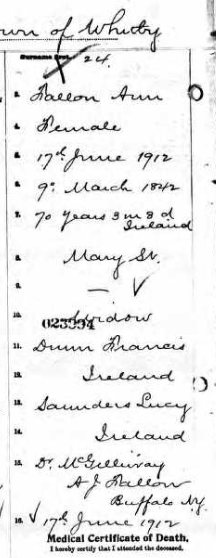 wn of Whitby
Surname First 24.
2. Fallon Ann
4. Female
5. 17th June 1912
6. 9th March 1842
7. 70 years 3 m 8 d
Ireland
8. Mary St.
9. — √
10. Widow
023994
11. Dunn Francis
12. Ireland
13. Saunders Lucy
14. Ireland
15. Dr. McGillivray
A J Fallon
Buffalo N.Y.
16. √ 17th June 1912
Medical Certificate of Death.
I hereby certify that I attended the deceased.